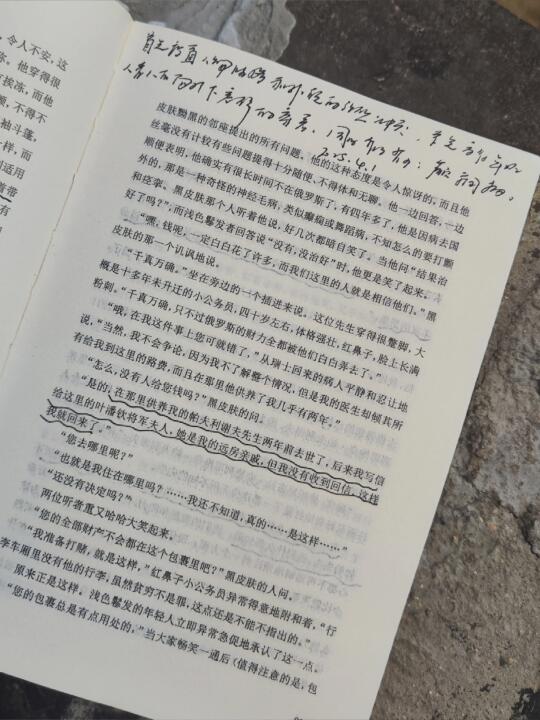 令人不安，这
他穿得很
挨冻，而他
不得不
袖斗蓬。
样，而
适用
着带
有
2025.4.1
皮肤黝黑的邻座提出的所有问题。他的这种态度是令人惊讶的，而且他
丝毫没有计较有些问题提得十分随便、不得体和无聊。他一边回答，一边
顺便表明，他确实有很长时间不在俄罗斯了，有四年多了，他是因病去国
外的，那是一种奇怪的神经毛病，类似癫痫或舞蹈病，不知怎么的要打颤
和痉挛。黑皮肤那个人听着他说，好几次都暗自笑了。当他问“结果治
好了吗？”，而浅色鬈发者回答说“没有，没治好”时，他更是笑了起来。
“嘿，钱呢，一定白白花了许多，而我们这里的人就是相信他们。”黑
皮肤的那一个讥讽地说。
“千真万确。”坐在旁边的一个插进来说。这位先生穿得很蹩脚，大
概是十多年未升迁的小公务员，四十岁左右，体格强壮，红鼻子，脸上长满
粉刺。“千真万确，只不过俄罗斯的财力全都被他们白白弄去了。”
“哦，在我这件事上您可就错了，”从瑞士回来的病人平静和忍让地
说，“当然，我不会争论，因为我不了解整个情况，但是我的医生却倾其所
有给我到这里的路费，而且在那里他供养了我几乎有两年。”
“怎么，没有人给您钱吗？”黑皮肤的问。
“是的，在那里供养我的帕夫利谢夫先生两年前去世了，后来我写信
给这里的叶潘钦将军夫人，她是我的远房亲戚，但我没有收到回信。这样
我就回来了。”
“您去哪里呢？”
“也就是我住在哪里吗？……我还不知道，真的……是这样……”
“还没有决定吗？”
两位听者重又哈哈大笑起来。
“您的全部财产不会都在这个包裹里吧？”黑皮肤的人问。
“我准备打赌，就是这样，”红鼻子小公务员异常得意地附和着，“行
李车厢里没有他的行李，虽然贫穷不是罪，这点还是不能不指出的。”
原来正是这样。浅色鬈发的年轻人立即异常急促地承认了这一点。
“您的包裹总是有点用处的，”当大家畅笑一通后（值得注意的是，包